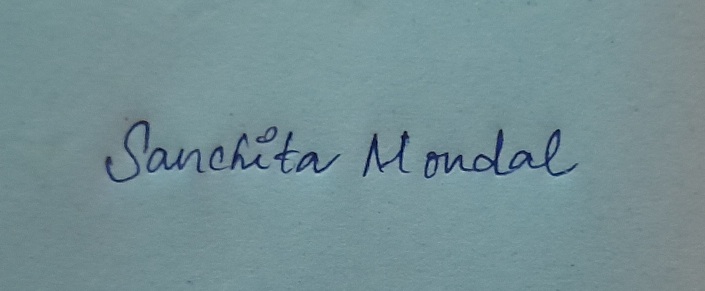 Sanchita Mondal